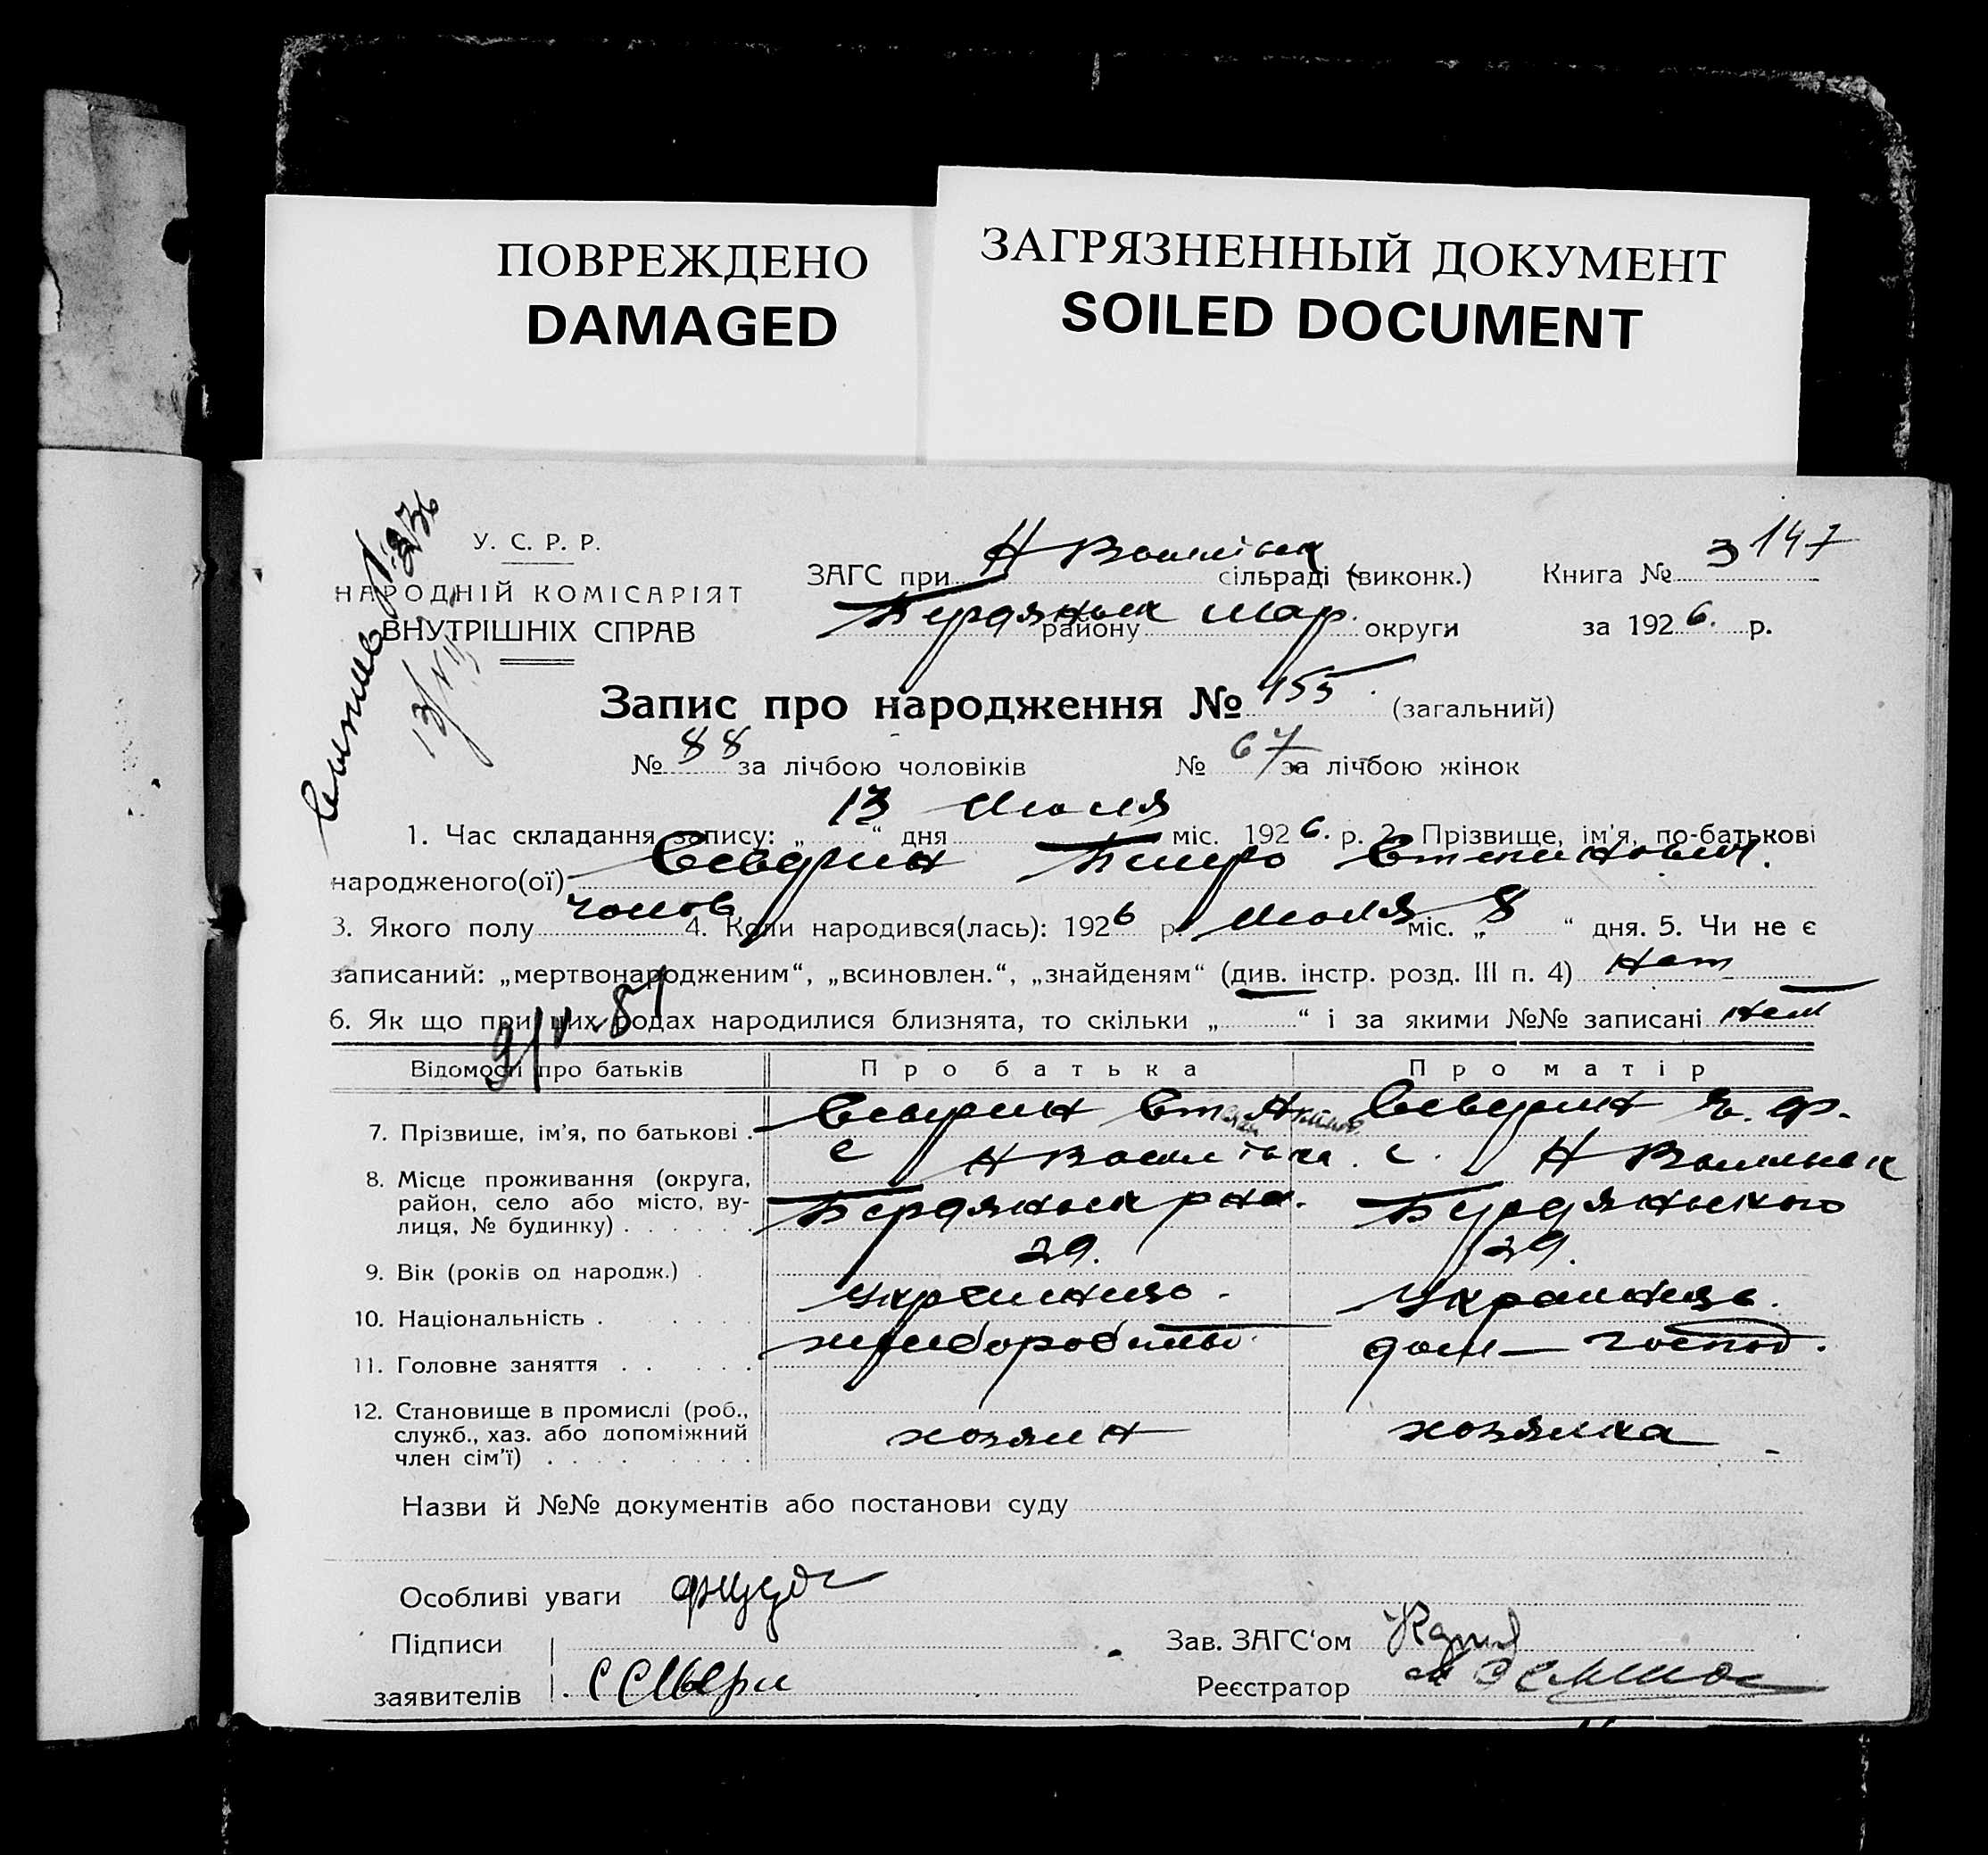 ПОВРЕЖДЕНО
DAMAGED
ЗАГРЯЗНЕННЫЙ ДОКУМЕНТ
SOILED DOCUMENT
У. С. Р. Р.
НАРОДНІЙ КОМІСАРІЯТ
ВНУТРІШНІХ СПРАВ
ЗАГС при Н Василівск сільраді (виконк.) Книга № 3 147
Бердянськ району Мар. округи за 1926. р.
Запис про народження № 155. (загальний)
№ 88 за лічбою чоловіків № 67 за лічбою жінок
1. Час складання запису: „13“ дня Июля міс. 1926. р. 2. Прізвище, ім'я, по-батькові
народженого(ої)
3. Якого полу чолов 4. Коли народився(лась): 1926 р. Июля міс. „8“ дня. 5. Чи не є
записаний: „мертвонародженим“, „всиновлен.“, „знайденям“ (див. інстр. розд. III п. 4) Нет
6. Як що при цих родах народилися близнята, то скільки „—“ і за якими №№ записані Нет
Відомості про батьків Про батька Про матір
7. Прізвище, ім'я, по батькові . Северин Северин
8. Місце проживання (округа, с Н Василівка. с. Н Василівск
район, село або місто, ву- Бердянськ рна. Бердянського
лиця, № будинку) . . . . . .
9. Вік (років од народж.) . 29. 29.
10. Національність . . . . . . Українць. Українць.
11. Головне заняття . . . . . хлиборобство. дом — господ.
12. Становище в промислі (роб.,
служб., хаз. або допоміжний хозяин хозяйка
член сім'ї) . . . . . . . .
Назви й №№ документів або постанови суду
Особливі уваги
Підписи Зав. ЗАГС'ом
заявителів Реєстратор